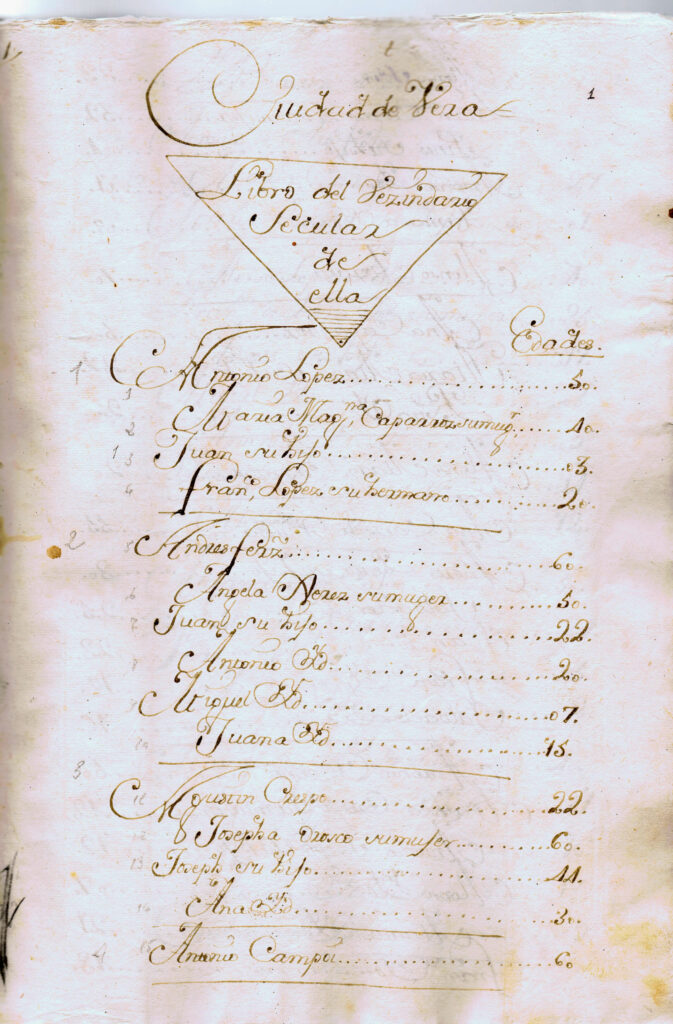 1
Ciudad de Vera
Libro del Vezindario
Secular
de
ella
Edades.
1 Antonio Lopez 50.
2 Maria Mag.na Caparros su mug.r 40.
3 Juan su hijo 03.
4 Fran.co Lopez su hermano 20.
2
5 Andres Ferz 60.
6 Angela Perez su muger 50.
7 Juan su hijo 22.
8 Antonio Yd. 20.
Miguel Yd. 07.
Juana Yd. 15.
3
Agustin Crespo 22.
Josepha Orosco su muger 60.
13 Joseph su hijo 44.
14 Ana Yd. 30.
4 15 Antonio Campoi 60